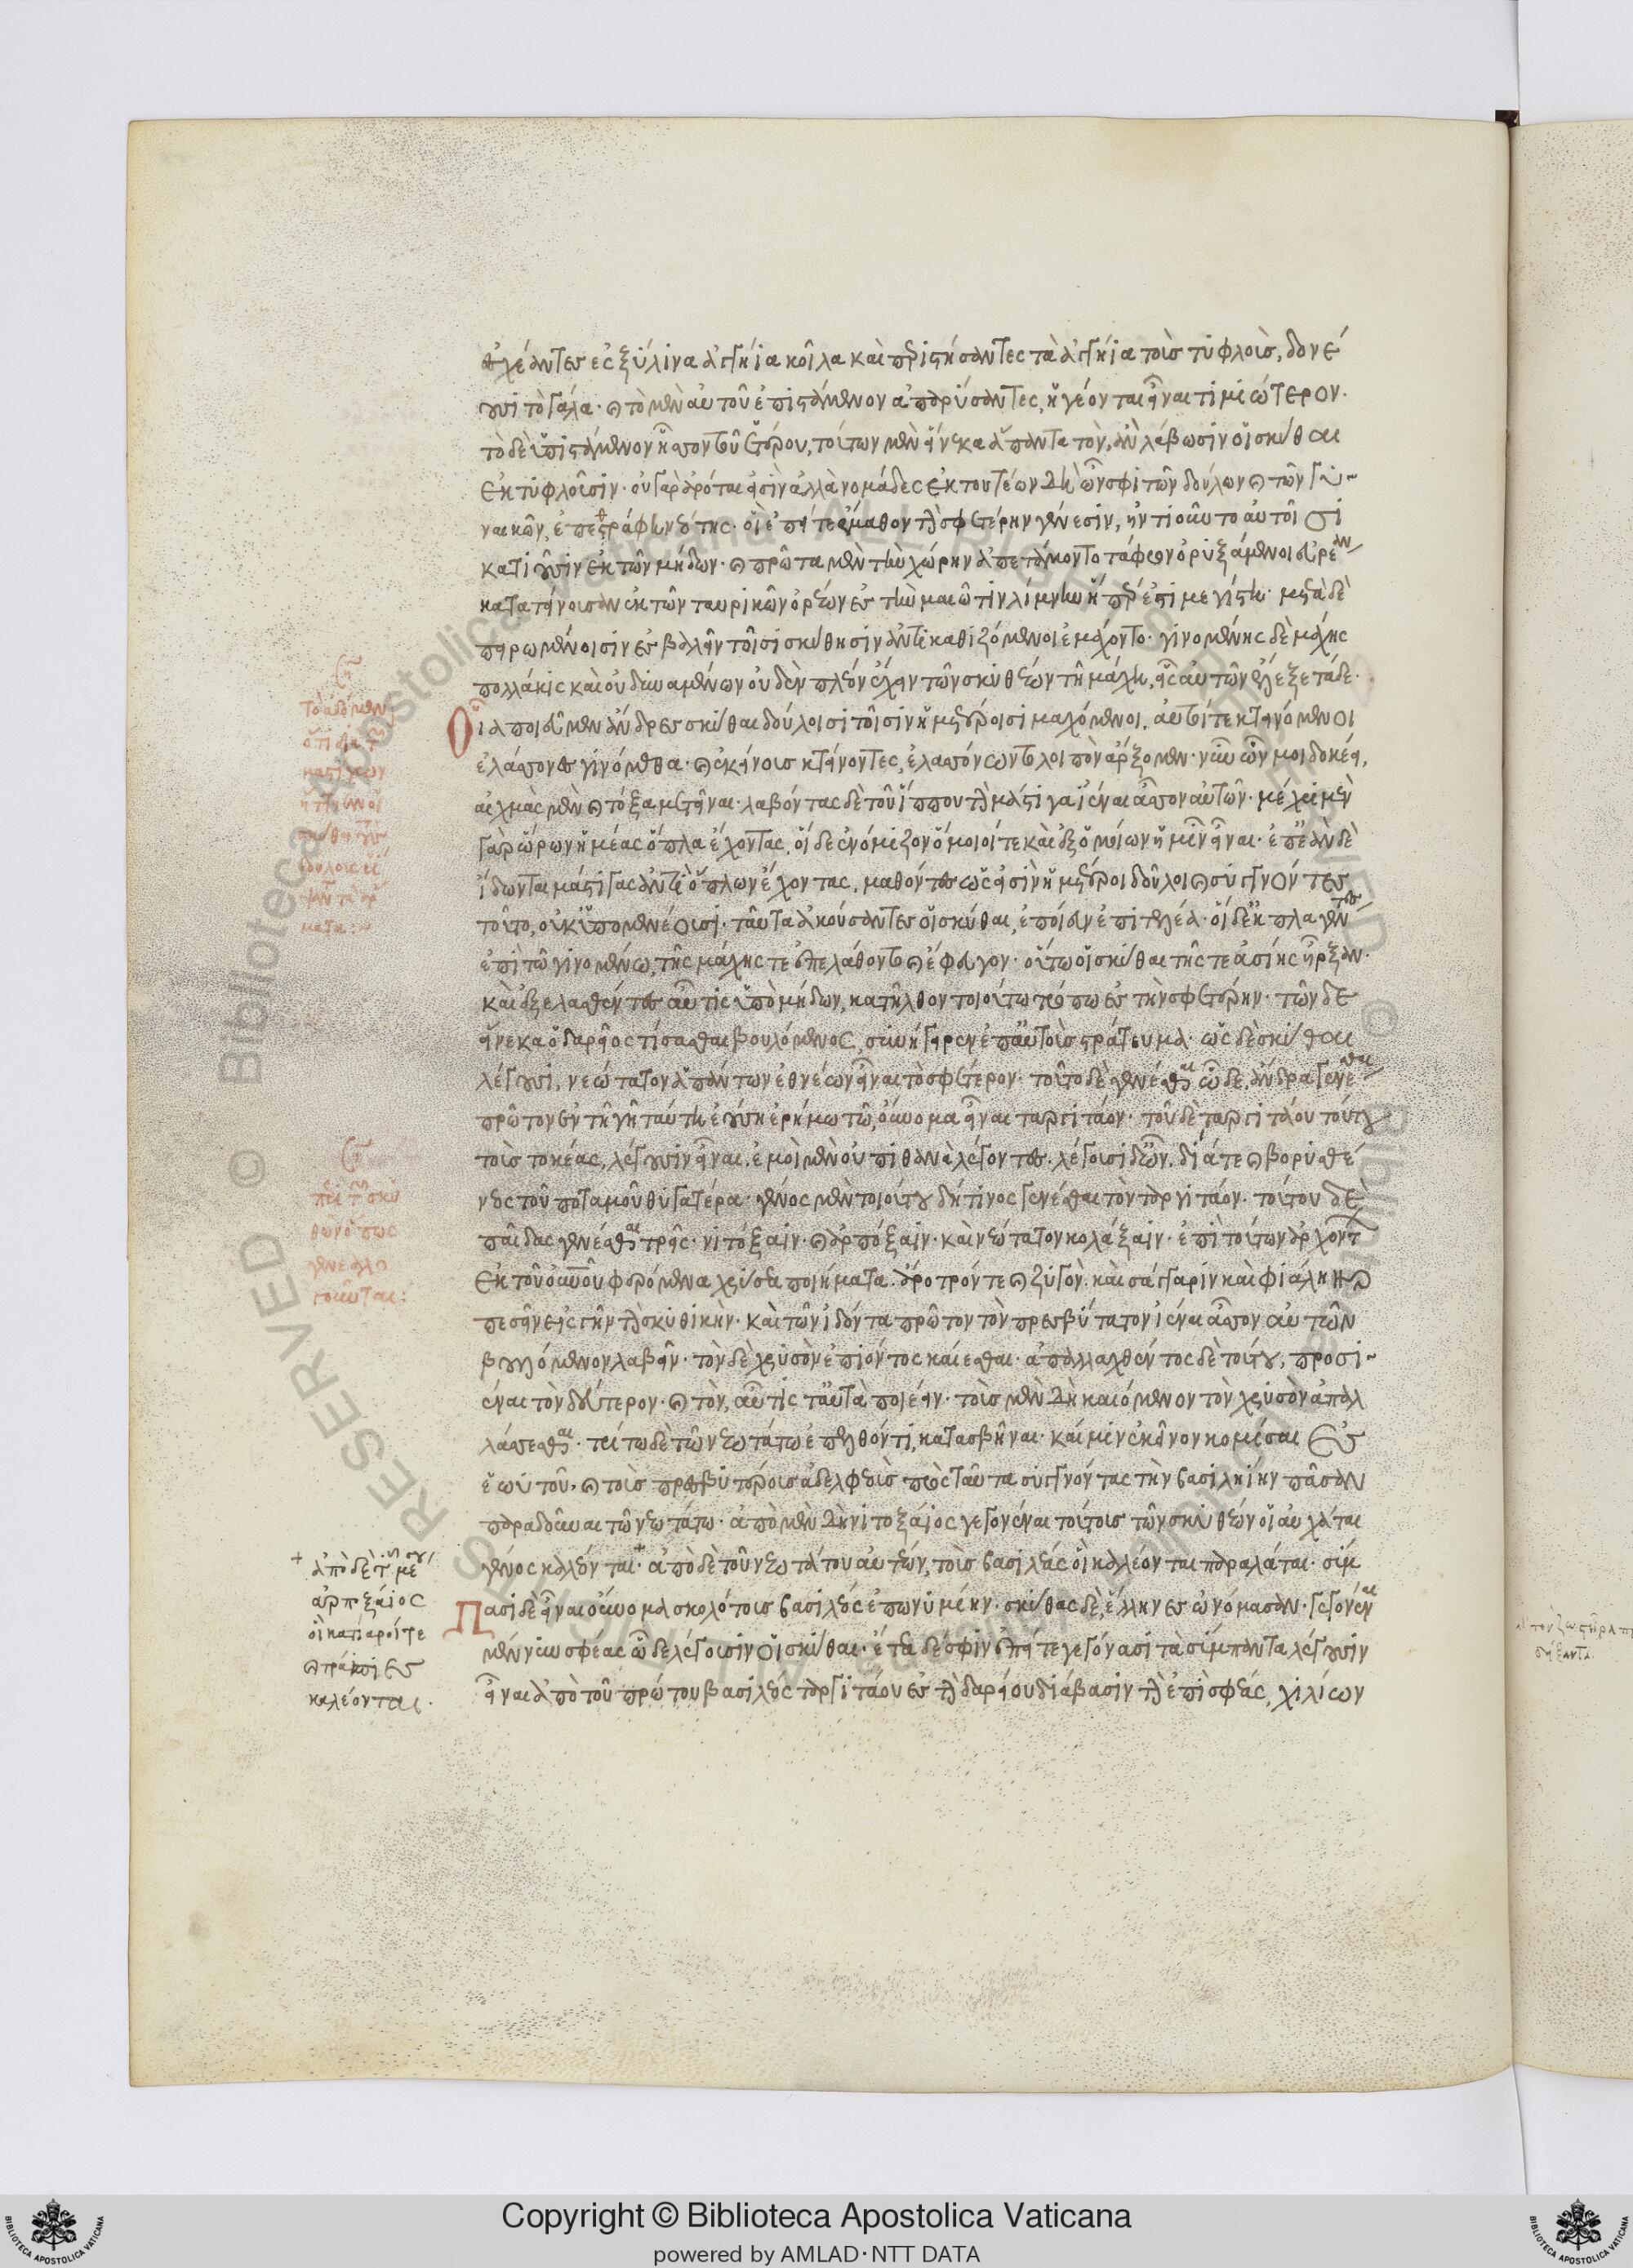 ἐγχέαντες ἐς ξύλινα ἀγγήια κοῖλα καὶ περιστήσαντες τὰ ἀγγήια τοὺς τυφλοὺς, δονέ
ουσι τὸ γάλα· καὶ τὸ μὲν αὐτοῦ ἐπιστάμενον ἀπαρύσαντες, ἡγέονται εἶναι τιμιώτερον·
τὸ δ' ὑπιστάμενον ἧσσον τοῦ ἑτέρου, τούτων μὲν εἵνεκα ἅπαντα τὸν, ἂν λάβωσιν οἱ σκύθαι
ἐκτυφλοῦσιν· οὐ γὰρ ἀρόται εἰσὶν ἀλλὰ νομάδες ἐκ τουτέων δὴ ὦν σφι τῶν δούλων καὶ τῶν γυ
ναικῶν, ἐπετράφη νεότης· οἳ ἐπείτε ἔμαθον τὴν σφετέρην γένεσιν, ἠντιοῦντο αὐτοῖσι
κατιοῦσιν ἐκ τῶν μήδων· καὶ πρῶτα μὲν τὴν χώρην ἀπετάμοντο τάφρον ὀρυξάμενοι εὐρέαν
κατατείνουσαν ἐκ τῶν ταυρικῶν ὀρέων ἐς τὴν μαιῶτιν λίμνην ἥπερ ἐστὶ μεγίστη· μετὰ δὲ
πειρωμένοισιν ἐσβαλεῖν τοῖσι σκύθησιν ἀντικαθιζόμενοι ἐμάχοντο· γινομένης δὲ μάχης
πολλάκις καὶ οὐ δυναμένων οὐδὲν πλέον ἔχειν τῶν σκυθέων τῇ μάχῃ, εἷς αὐτῶν ἔλεξε τάδε·
Οἷα ποιεῦμεν ἄνδρες σκύθαι δούλοισι τοῖσιν ἡμετέροισι μαχόμενοι, αὐτοί τε κτεινόμενοι
ἐλάσσονες γινόμεθα· καὶ ἐκείνους κτείνοντες, ἐλασσόνων τολοιπὸν ἄρξομεν· νῦν ὦν μοι δοκέει,
αἰχμὰς μὲν καὶ τόξα μετεῖναι· λαβόντας δὲ τοῦ ἵππου τὴν μάστιγα ἰέναι ἆσσον αὐτῶν· μέχρι μὲν
γὰρ ὥρων ἡμέας ὅπλα ἔχοντας, οἵδε ἐνόμιζον ὅμοιοί τε καὶ ἐξ ὁμοίων ἡμῖν εἶναι· ἐπεὰν δὲ
ἴδωνται μάστιγας ἀντὶ ὅπλων ἔχοντας, μαθόντες ὥς εἰσὶν ἡμέτεροι δοῦλοι καὶ συγγνόντες
τοῦτο, οὐκ ὑπομενέουσι· ταῦτα ἀκούσαντες οἱ σκύθαι, ἐποίευν ἐπιτελέα· οἱ δ' ἐκπλαγέντες
ἐπὶ τῷ γινομένῳ, τῆς μάχης τε ἐπελάθοντο καὶ ἔφευγον· οὕτω οἱ σκύθαι τῆς τε ἀσίης ἦρξαν·
καὶ ἐξελασθέντες αὖτις ὑπὸ μήδων, κατῆλθον τοιούτῳ τρόπῳ ἐς τὴν σφετέρην· τῶν δὲ
εἵνεκα ὁ δαρεῖος τίσασθαι βουλόμενος, συνήγειρεν ἐπ' αὐτοὺς στράτευμα· ὡς δὲ σκύθαι
λέγουσι, νεώτατον ἁπάντων ἐθνέων εἶναι τὸ σφέτερον· τοῦτο δὲ γενέσθαι ὧδε, ἄνδρα γενέσθαι
πρῶτον ἐν τῇ γῇ ταύτῃ ἐούσῃ ἐρήμῳ τῷ, οὔνομα εἶναι ταργιτάον· τοῦ δὲ ταργιτάου τούτου
τοὺς τοκέας, λέγουσιν εἶναι, ἐμοὶ μὲν οὐ πιθανὰ λέγοντες, λέγουσι δ' ὦν, δία τε καὶ βορυσθέ
νεος τοῦ ποταμοῦ θυγατέρα· γένος μὲν τοιούτου δή τινος γενέσθαι τὸν ταργιτάον· τούτου δὲ
παῖδας γενέσθαι τρεῖς· νιτόξαιν· καὶ ἀρπόξαιν· καὶ νεώτατον κολάξαιν· ἐπὶ τούτων ἀρχόντ
ἐκ τοῦ οὐνοῦ φερόμενα χρύσεα ποιήματα· ἄροτρόν τε καὶ ζυγὸν καὶ σάγαριν καὶ φιάλην
πεσεῖν εἰς γῆν τὴν σκυθικὴν· καὶ τῶν ἰδόντα πρῶτον τὸν πρεσβύτατον ἰέναι ἆσσον αὐτῶν
βουλόμενον λαβεῖν· τὸν δὲ χρυσὸν ἐπιόντος καίεσθαι· ἀπαλλαχθέντος δὲ τούτου, προσι
έναι τὸν δεύτερον· καὶ τὸν, αὖτις ταὐτὰ ποιέειν· τοὺς μὲν δὴ καιόμενον τὸν χρυσὸν ἀπαλ
λάσσεσθαι· τρίτῳ δὲ τῷ νεωτάτῳ ἐπελθόντι, κατασβῆναι· καί μιν ἐκεῖνον κομίσαι ἐς
ἑωυτοῦ· καὶ τοὺς πρεσβυτέρους ἀδελφεοὺς πρὸς ταῦτα συγγνόντας τὴν βασιληίην πᾶσαν
παραδοῦναι τῷ νεωτάτῳ· ἀπὸ μὲν δὴ νιτοξάιος γεγονέναι τούτους τῶν σκυθέων οἳ αὐχάται
γένος καλέονται· ἀπὸ δὲ τοῦ νεωτάτου αὐτέων, τοὺς βασιλέας οἳ καλέονται παραλάται· σύμ
Πασι δὲ εἶναι οὔνομα σκολότους βασιλέος ἐπωνυμίην· σκύθας δὲ, ἕλληνες ὠνόμασαν· γεγονέναι
μέν νυν σφέας ὧδε λέγουσιν οἱ σκύθαι· ἔτεα δέ σφιν ἐπείτε γεγόνασι τὰ σύμπαντα λέγουσιν
εἶναι ἀπὸ τοῦ πρώτου βασιλέος ταργιτάου ἐς τὴν δαρείου διάβασιν τὴν ἐπὶ σφέας, χιλίων
ἀπὸ δὲ τοῦ μέσου
ἀρποξάιος
οἳ κατίαροί τε
καὶ τράπιες
καλέονται·